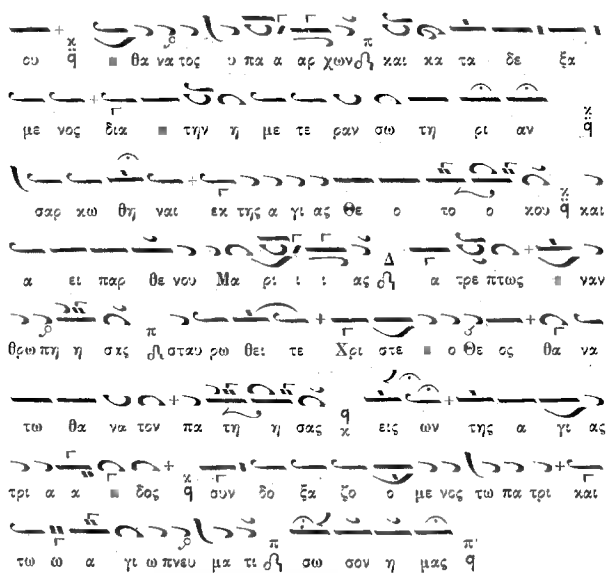 ου ■ θα να τος υ πα α αρ χων και κα τα δε ξα
με νος δια ■ την η με τε ραν σω τη ρι αν
σαρ κω θη ναι εκ της α γι ας Θε ο το ο κου και
α ει παρ θε νου Μα ρι ι ι ας α τρε πτως ■ ναν
θρω πη η σας σταυ ρω θει τε Χρι στε ■ ο Θε ος θα να
τω θα να τον πα τη η σας εις ων της α γι ας
τρι α α ■ δος συν δο ξα ζο ο με νος τω πα τρι και
τω ω α γι ω πνευ μα τι σω σον η μας